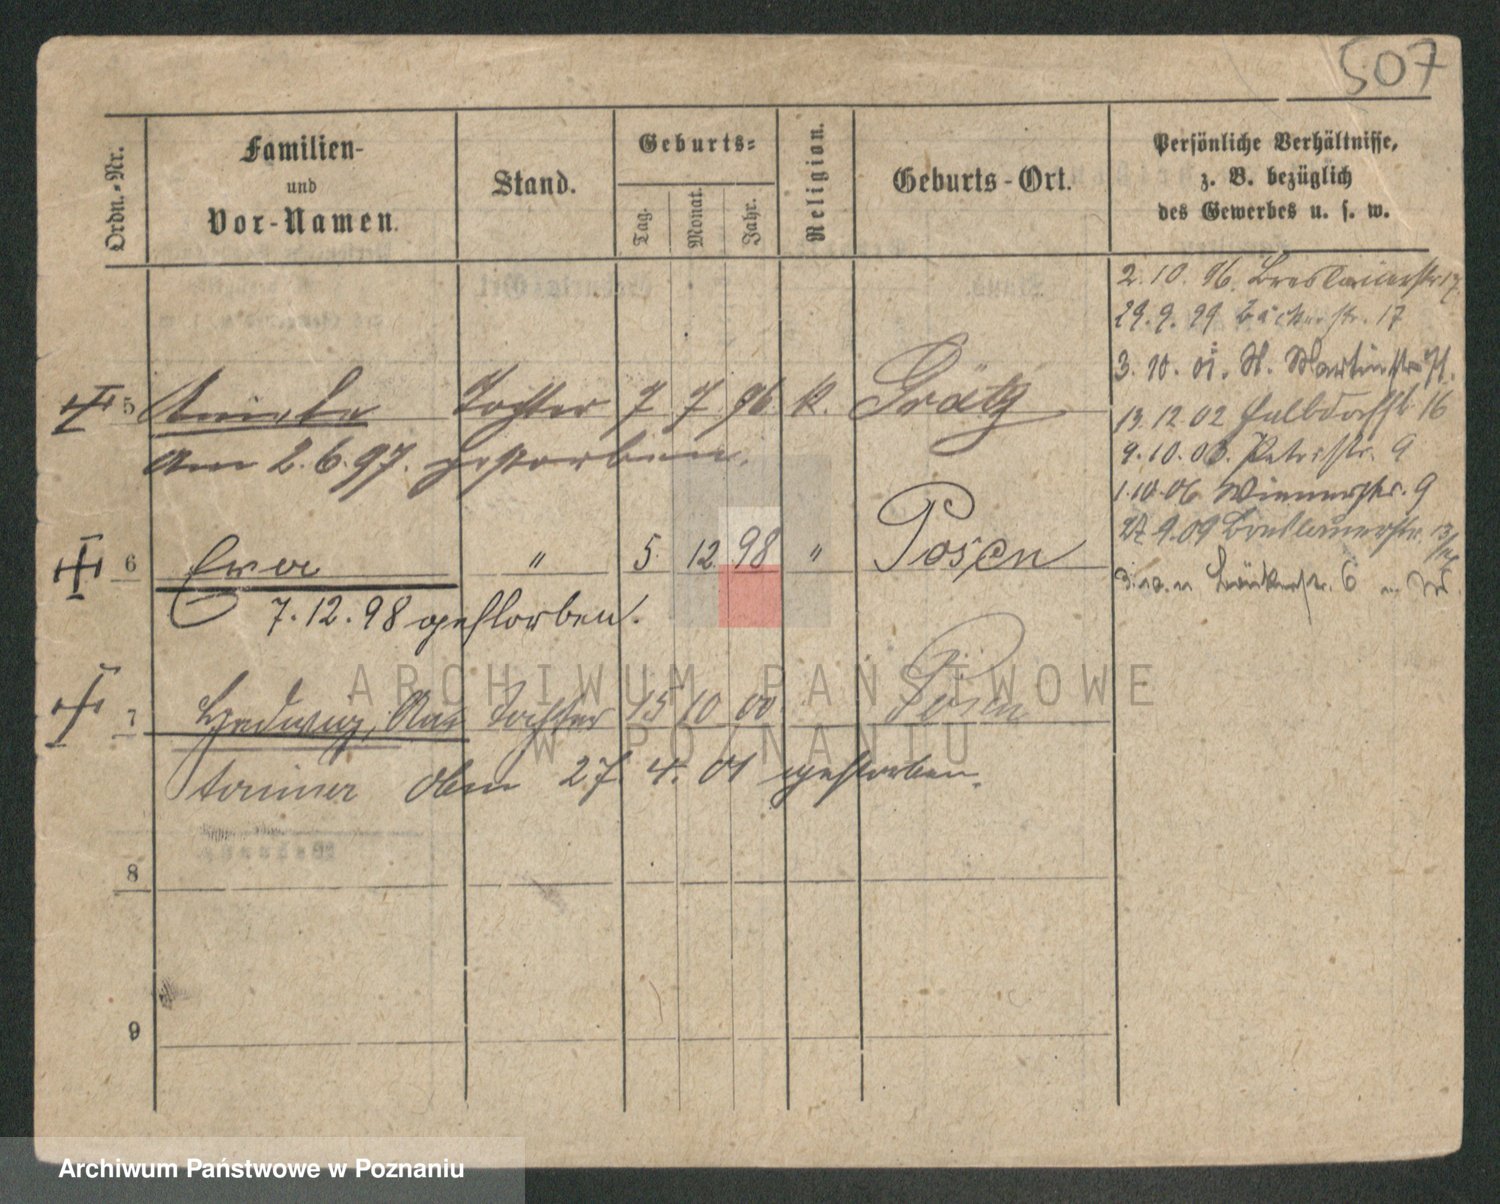 507
Ordn.-Nr.
Familien-
und
Vor-Namen.
Stand.
Geburts-
Tag.
Monat.
Jahr.
Religion.
Geburts-Ort.
Persönliche Verhältnisse,
z. B. bezüglich
des Gewerbes u. s. w.
2. 10. 96. Breslauerstr 17.
29. 9. 99 Bäckerstr. 17
3. 10. 01. St. Martinstr
13. 12. 02 Halbdorfstr 16
9. 10. 03. Petristr. 9
1. 10 06 Wienerstr. 9
27. 9. 09 Breslauerstr. 13/14
Bäckerstr. 6
5 Tochter 7 7 96 k. Grätz
am 2. 6. 97. gestorben.
6 Eva " 5 12 98 " Posen
7. 12. 98 gestorben.
7 Hedwig, Tochter 15 10 00 Posen
27. 4. 01 gestorben.
8
9
ARCHIWUM PAŃSTWOWE
W POZNANIU
Archiwum Państwowe w Poznaniu